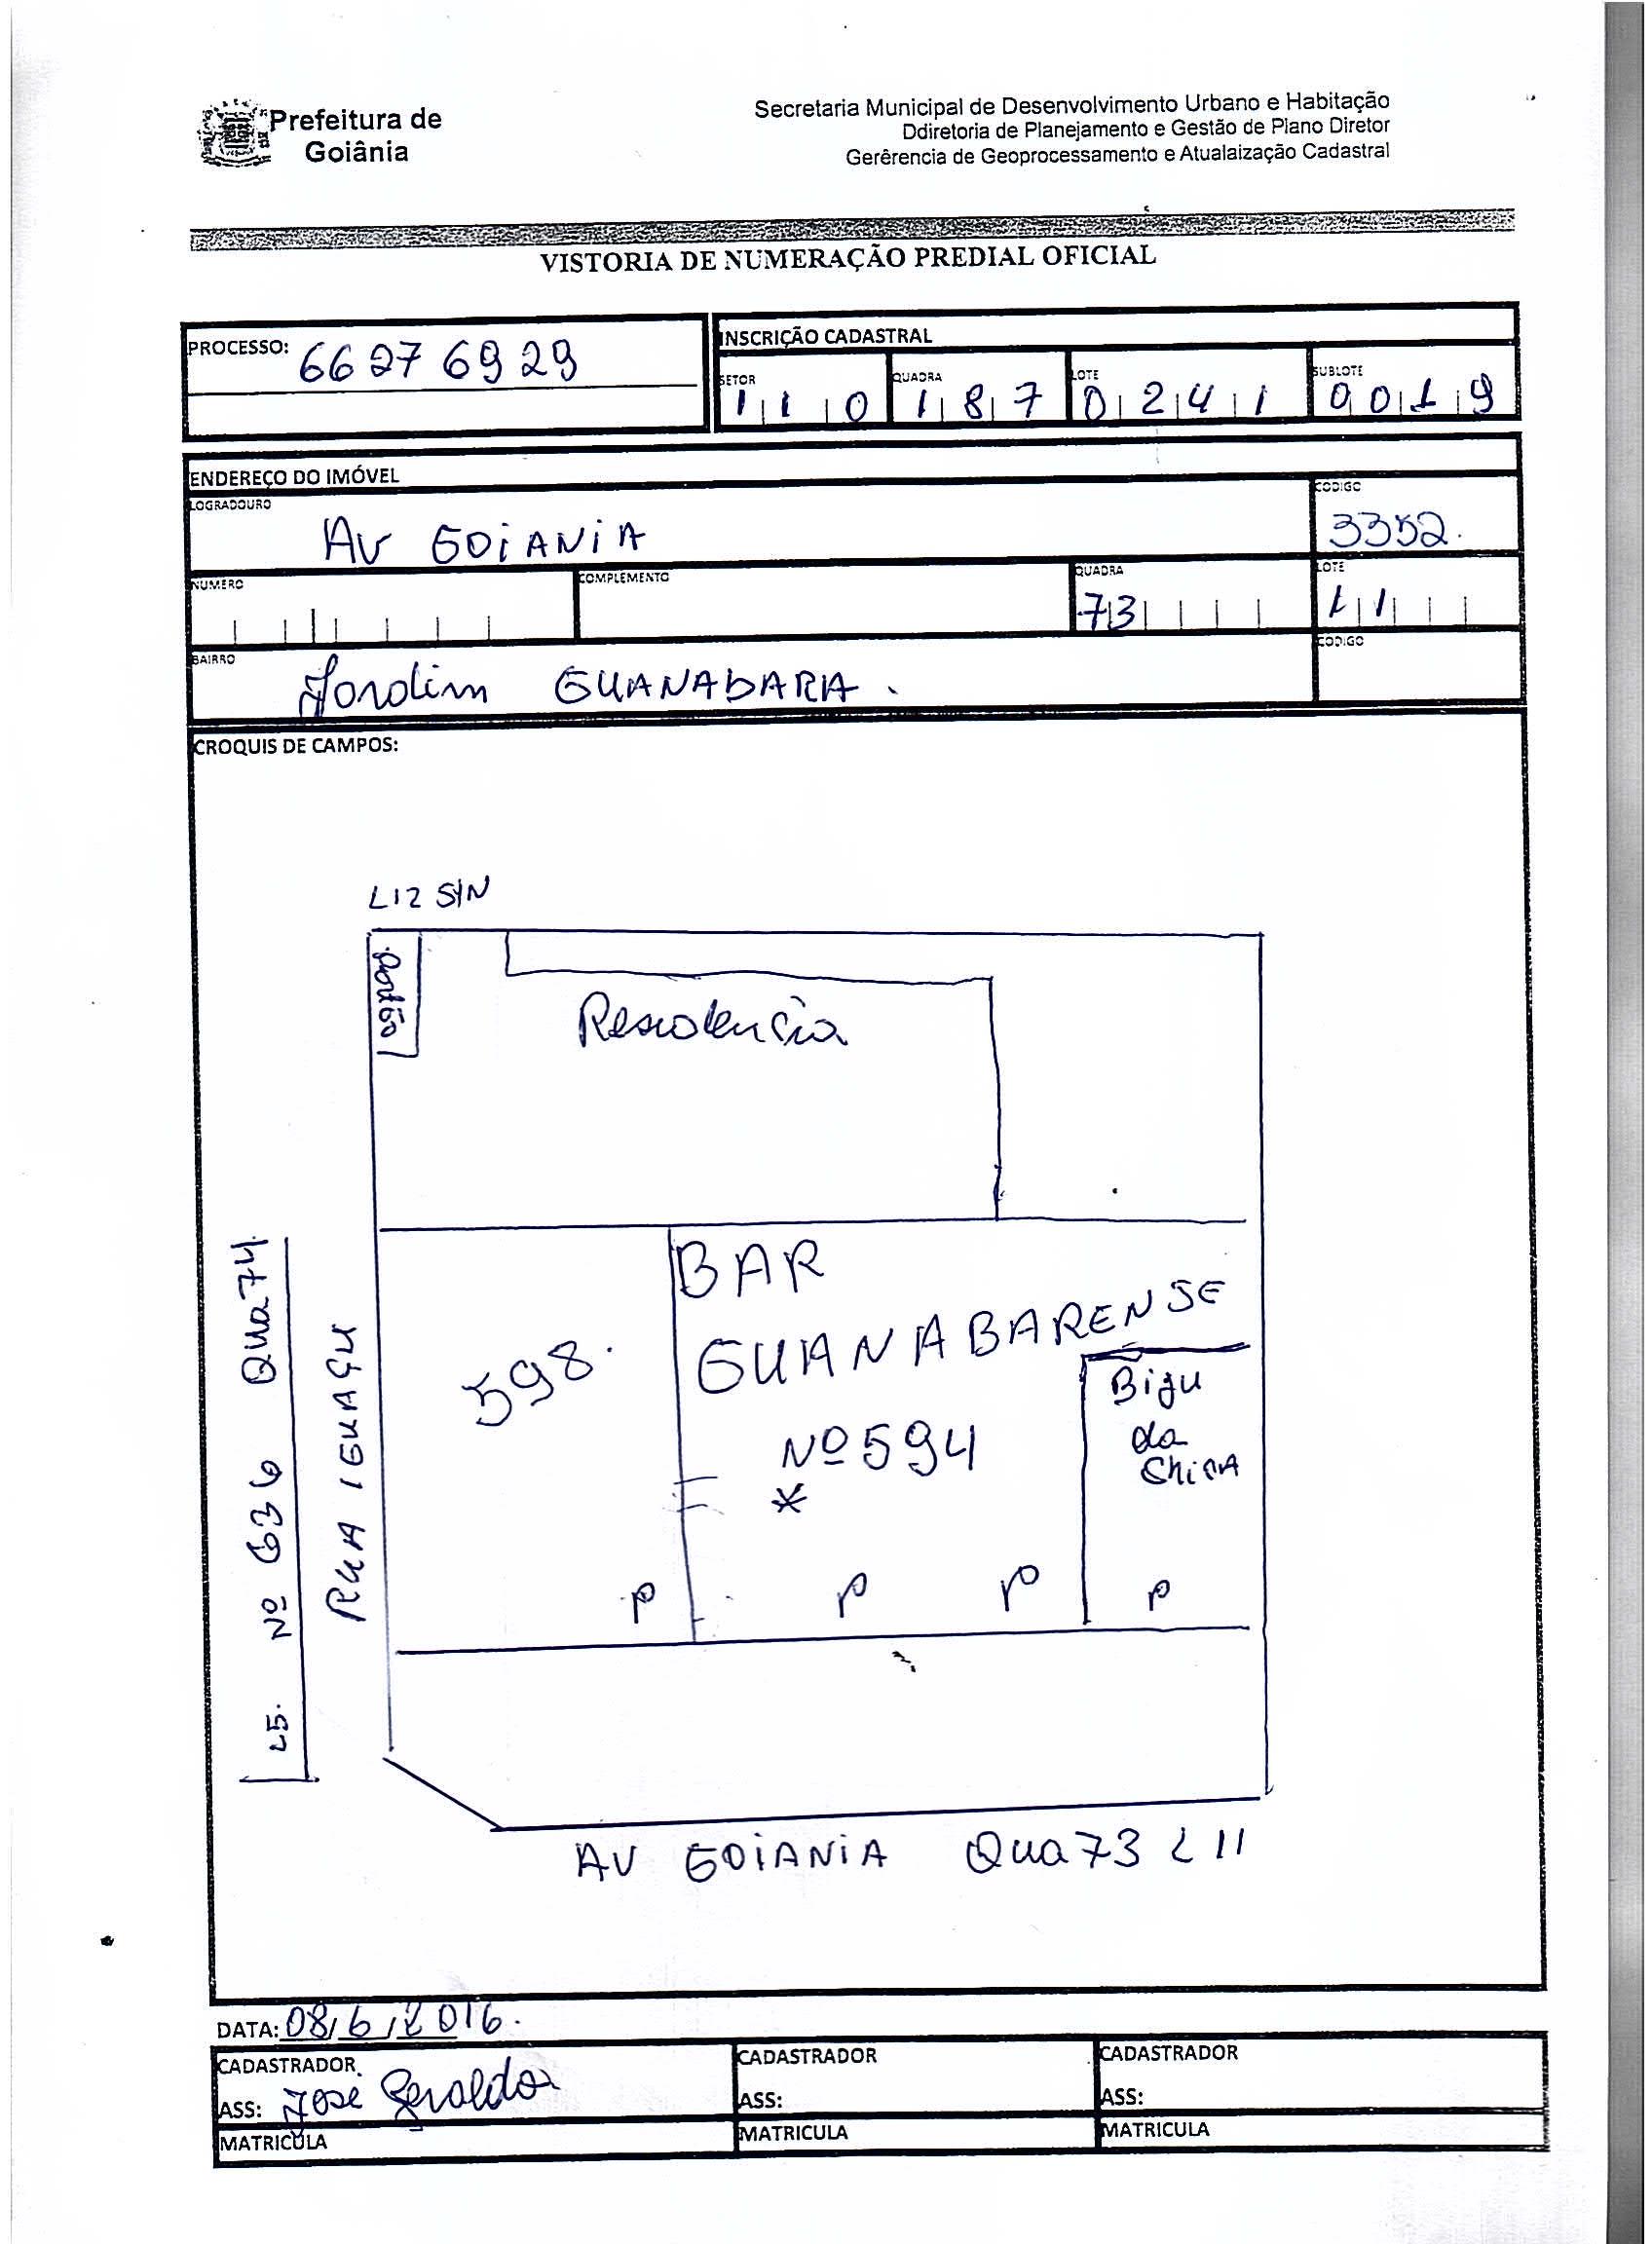 Prefeitura de
Goiânia
Secretaria Municipal de Desenvolvimento Urbano e Habitação
Ddiretoria de Planejamento e Gestão de Plano Diretor
Gerêrencia de Geoprocessamento e Atualaização Cadastral
VISTORIA DE NUMERAÇÃO PREDIAL OFICIAL
PROCESSO: 66276929
INSCRIÇÃO CADASTRAL
SETOR QUADRA LOTE SUBLOTE
110 187 0241 0019
ENDEREÇO DO IMÓVEL
LOGRADOURO CODIGO
AV GOIANIA 3352.
NUMERO COMPLEMENTO QUADRA LOTE
73 11
BAIRRO CODIGO
Jardim GUANABARA.
CROQUIS DE CAMPOS:
L12 S/N
Portão
Residencia
BAR
GUANABARENSE
598.
Nº 594
*
Biju
da
P P P P
RUA IGUAÇU
L5. Nº 636 Qua 74.
AV GOIANIA Qua 73 L 11
DATA: 08/6/2016.
CADASTRADOR CADASTRADOR CADASTRADOR
ASS: José Geraldo ASS: ASS:
MATRICULA MATRICULA MATRICULA